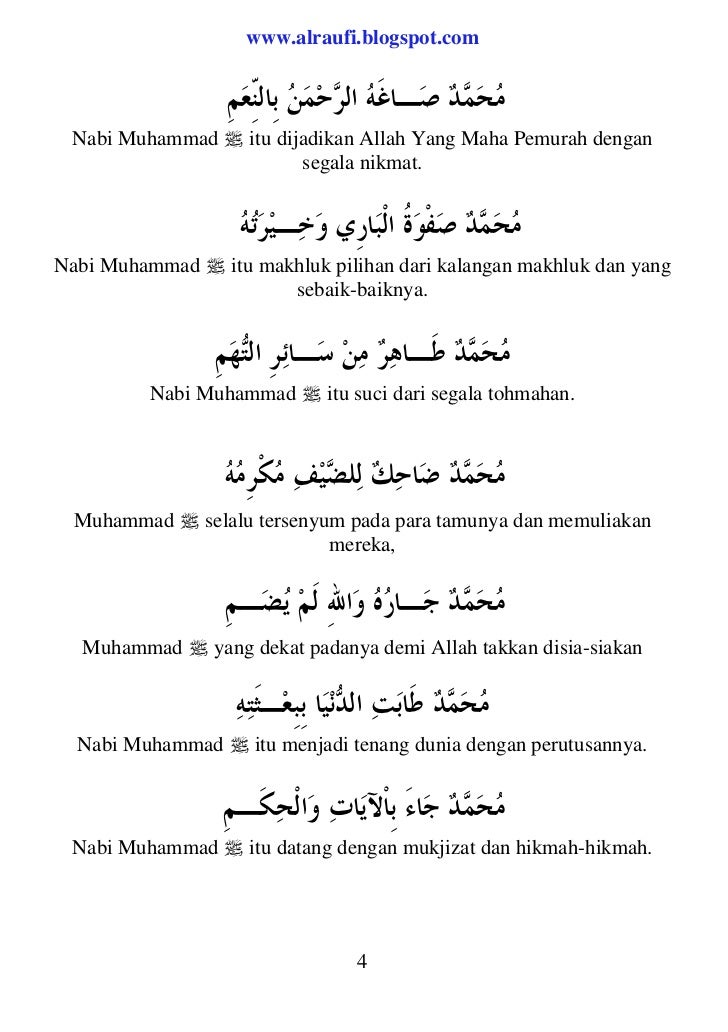 www.alraufi.blogspot.com
مُحَمَّدٌ صَـــاغَهُ الرَّحْمَنُ بِالنِّعَمِ
Nabi Muhammad ﷺ itu dijadikan Allah Yang Maha Pemurah dengan
segala nikmat.
مُحَمَّدٌ صَفْوَةُ الْبَارِي وَخِـــيْرَتُهُ
Nabi Muhammad ﷺ itu makhluk pilihan dari kalangan makhluk dan yang
sebaik-baiknya.
مُحَمَّدٌ طَـــاهِرٌ مِنْ سَـــائِرِ التُّهَمِ
Nabi Muhammad ﷺ itu suci dari segala tohmahan.
مُحَمَّدٌ ضَاحِكٌ لِلضَّيْفِ مُكْرِمُهُ
Muhammad ﷺ selalu tersenyum pada para tamunya dan memuliakan
mereka,
مُحَمَّدٌ جَـــارُهُ وَاللهِ لَمْ يُضَـــمِ
Muhammad ﷺ yang dekat padanya demi Allah takkan disia-siakan
مُحَمَّدٌ طَابَتِ الدُّنْيَا بِبِعْـــثَتِهِ
Nabi Muhammad ﷺ itu menjadi tenang dunia dengan perutusannya.
مُحَمَّدٌ جَاءَ بِاْلآيَاتِ وَالْحِكَـــمِ
Nabi Muhammad ﷺ itu datang dengan mukjizat dan hikmah-hikmah.
4